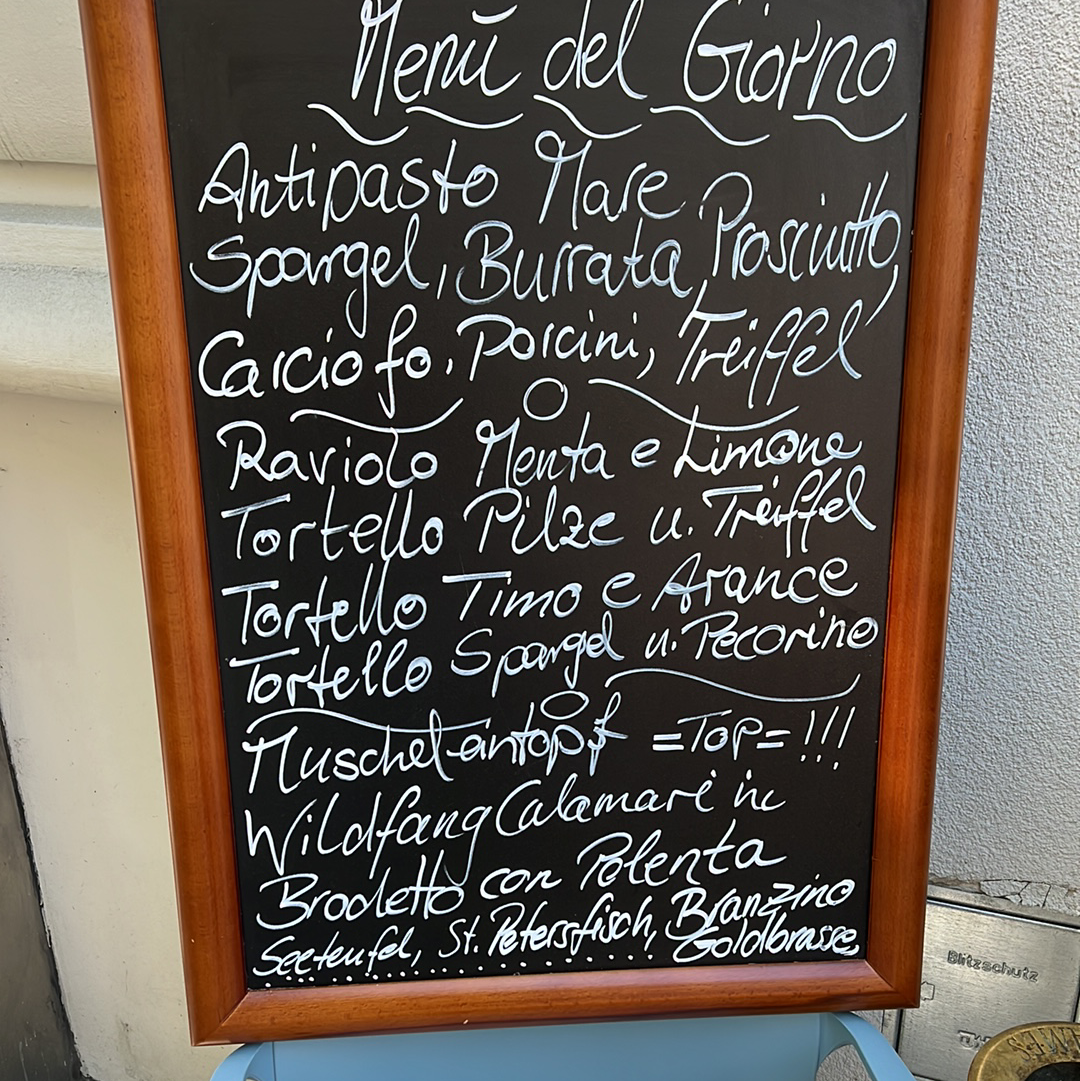 Menü del Giorno
Antipasto Mare
Spargel, Burrata, Prosciutto,
Carciofo, Porcini, Trüffel
Raviolo Menta e Limone
Tortello Pilze u. Trüffel
Tortello Timo e Arance
Tortello Spargel u. Pecorino
Muscheleintopf =TOP= !!!
Wildfang Calamari in
Brodetto con Polenta
Seeteufel, St. Petersfisch, Branzino
Goldbrasse
Blitzschutz